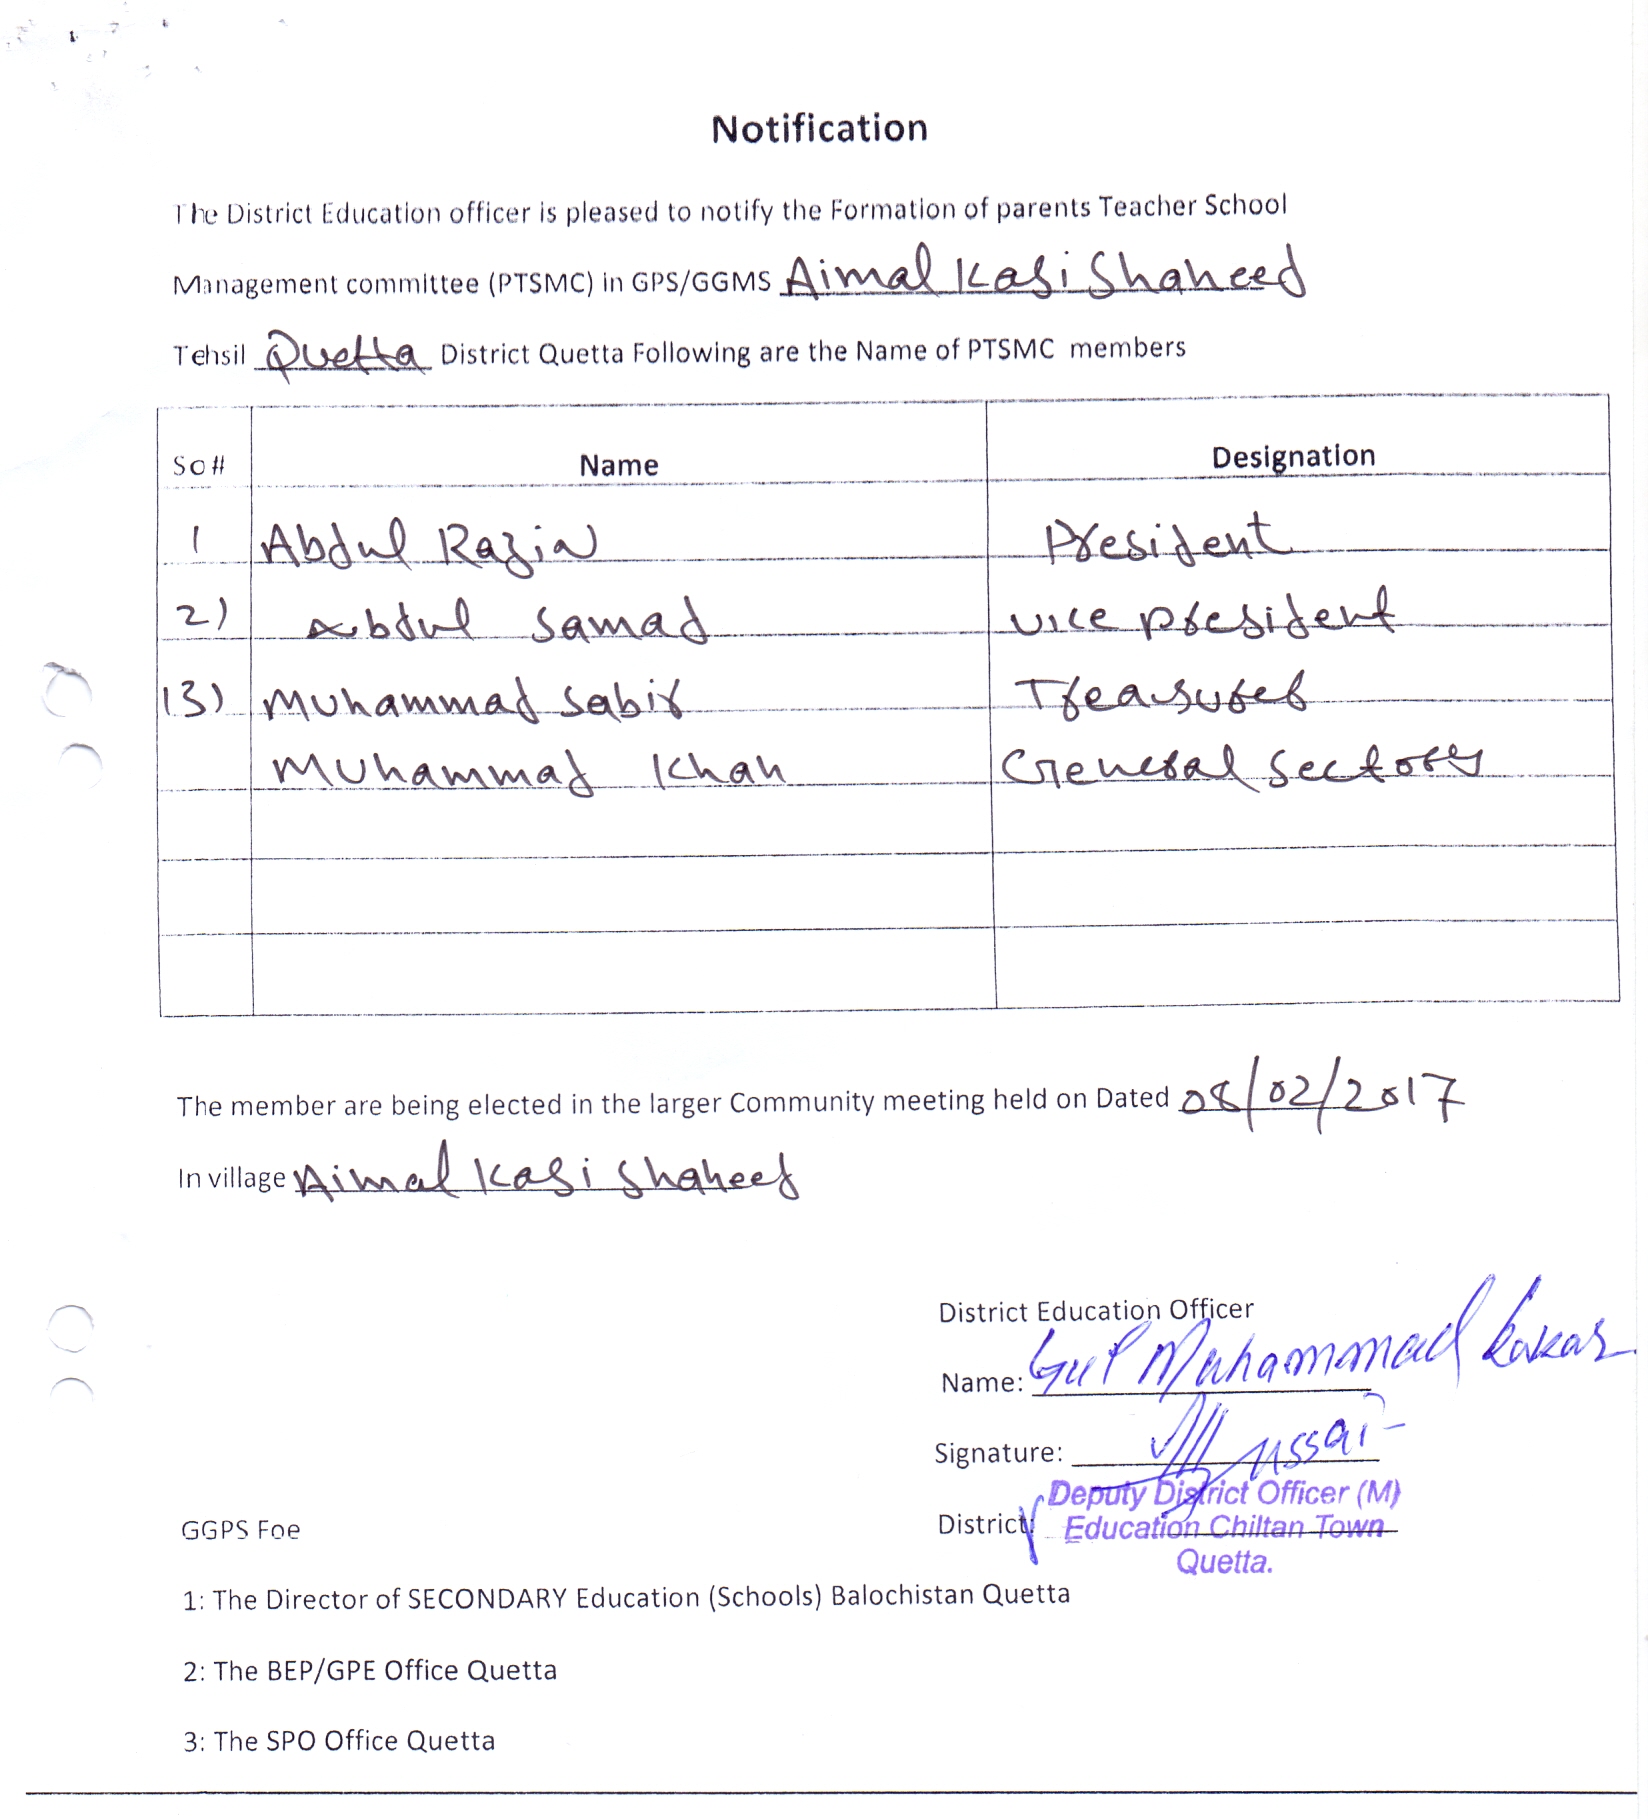 Notification
The District Education officer is pleased to notify the Formation of parents Teacher School
Management committee (PTSMC) in GPS/GGMS Aimal Kasi Shaheed
Tehsil Quetta District Quetta Following are the Name of PTSMC members
So# Name Designation
1 Abdul Raziq President
2) Abdul Samad vice president
3) Muhammad Sabir Treasurer
Muhammad Khan General Sectory
The member are being elected in the larger Community meeting held on Dated 08/02/2017
In village Aimal Kasi Shaheed
District Education Officer
Name: Gul Muhammad Kakar
Signature:
District: Deputy District Officer (M)
Education Chiltan Town
Quetta.
GGPS Foe
1: The Director of SECONDARY Education (Schools) Balochistan Quetta
2: The BEP/GPE Office Quetta
3: The SPO Office Quetta